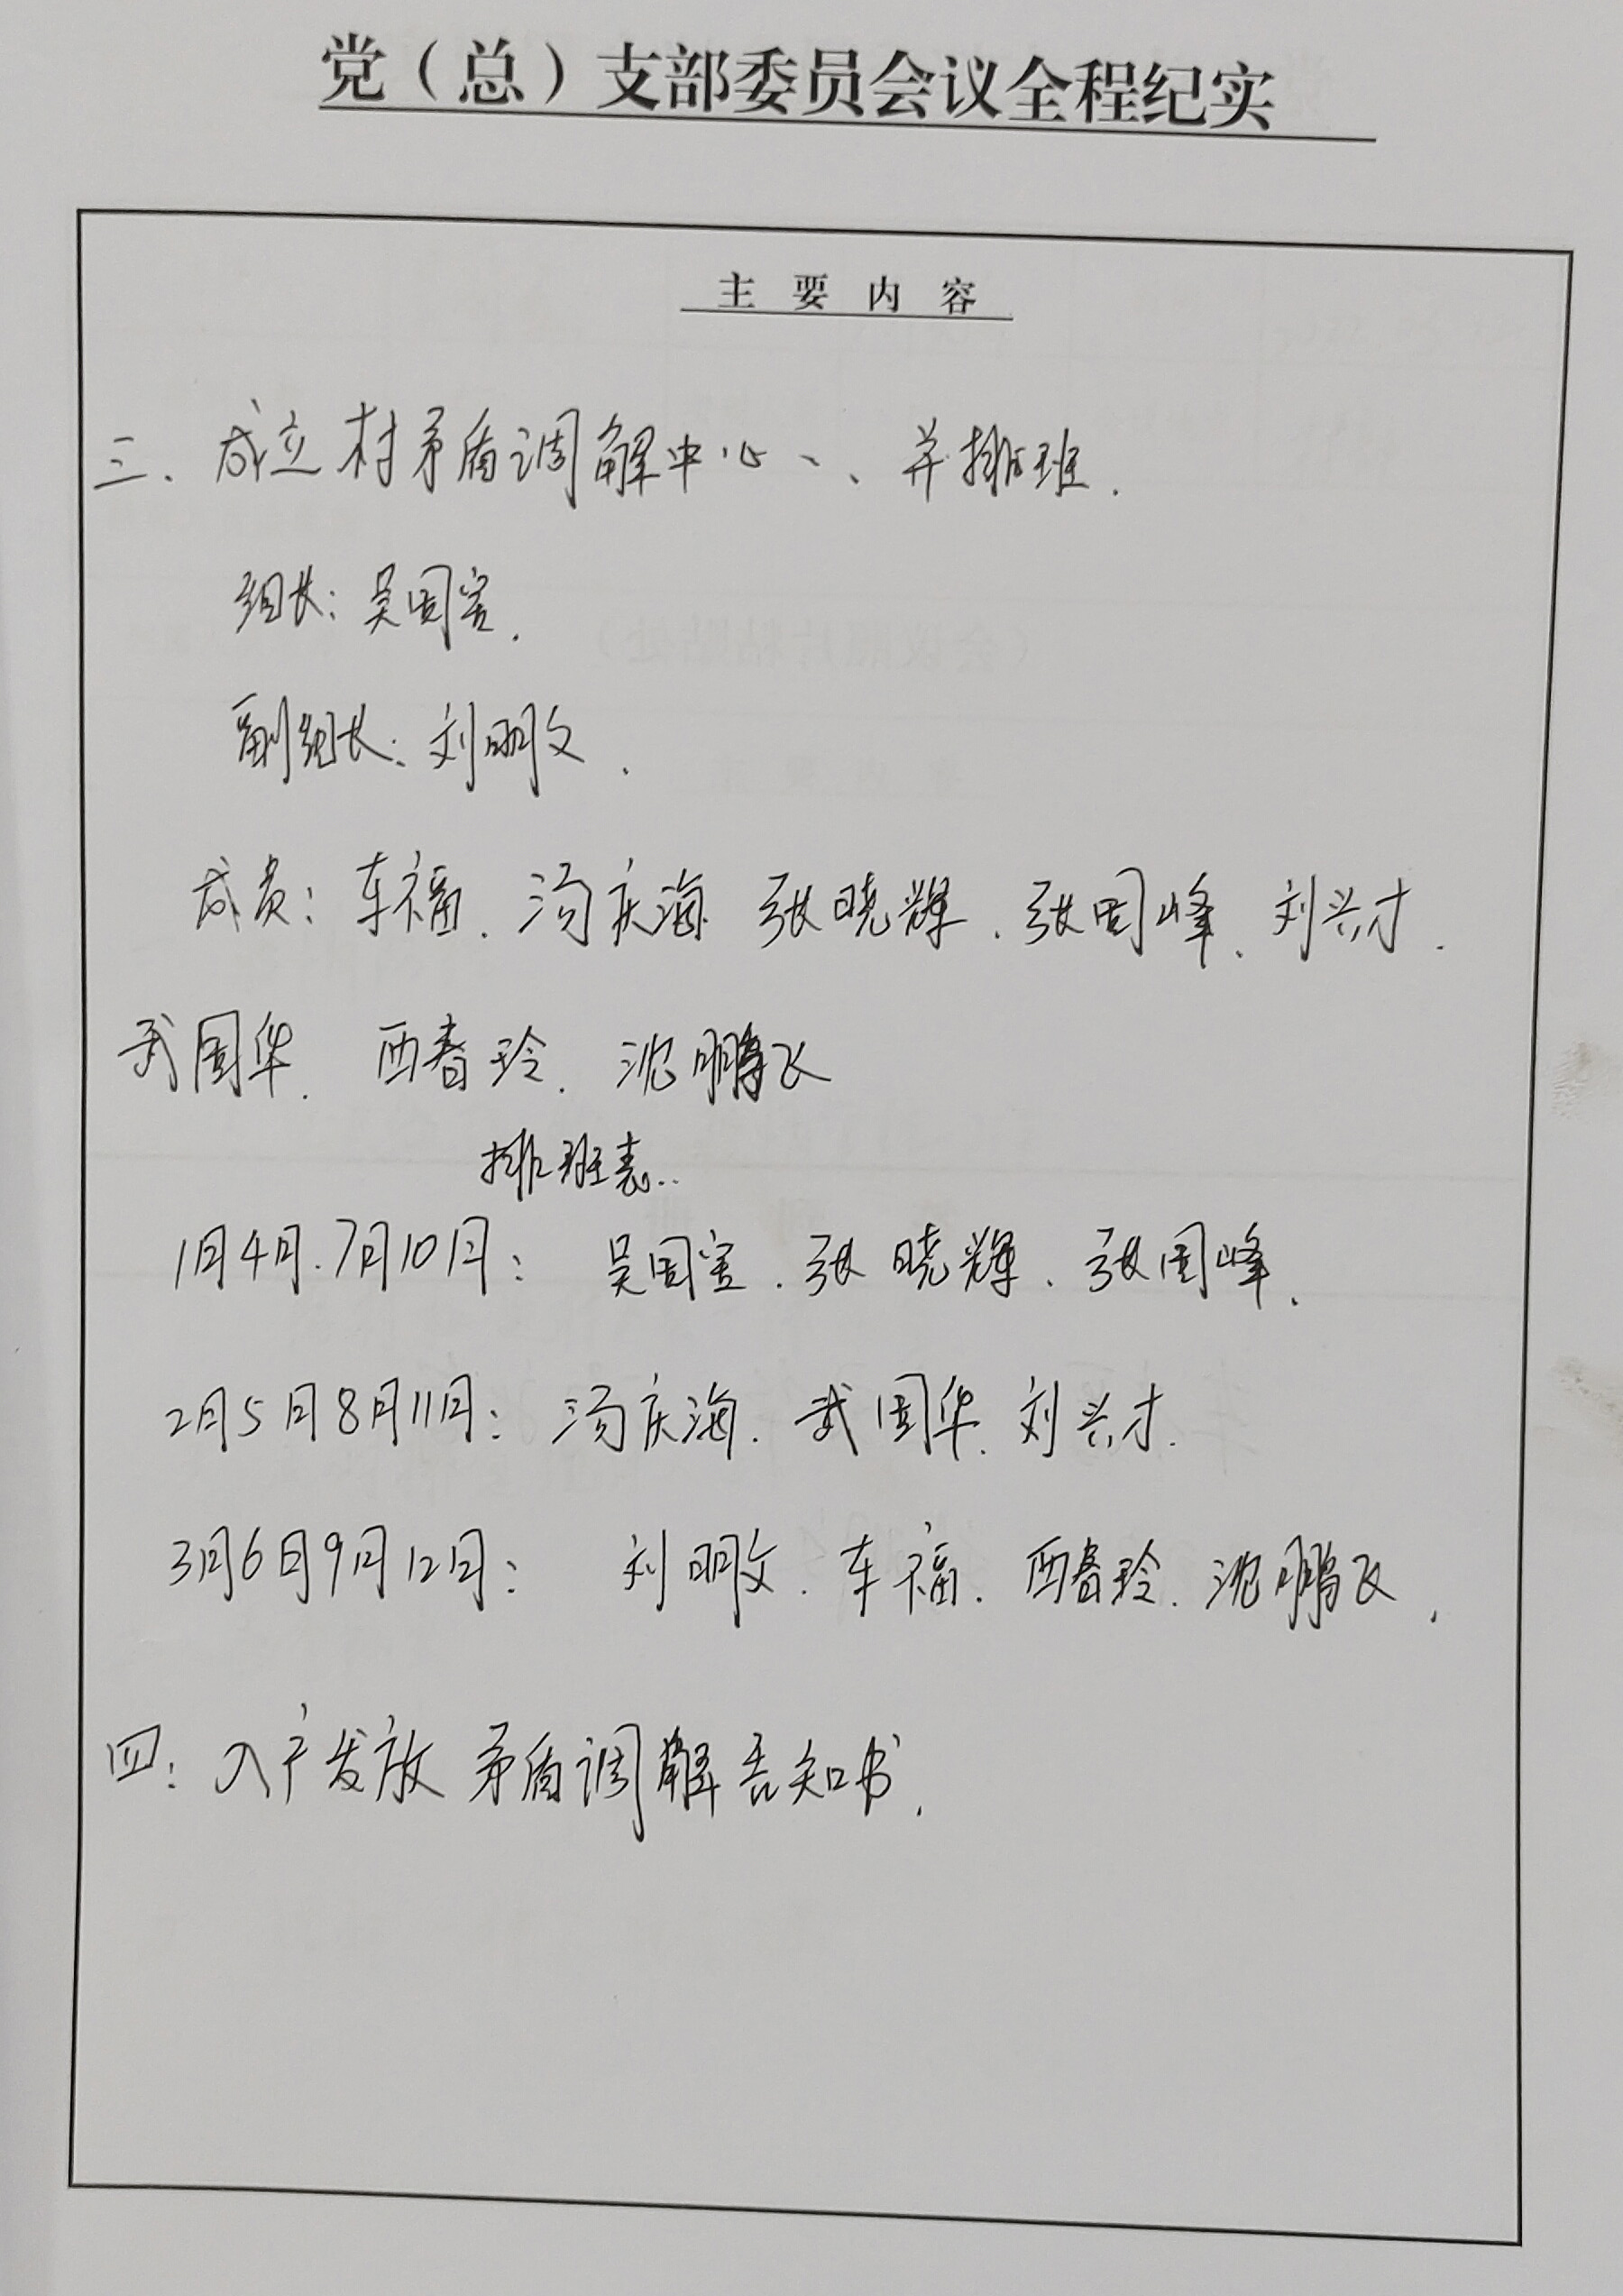 党（总）支部委员会议全程纪实
主要内容
三、成立村矛盾调解中心、、并排班.
组长：吴国宝.
副组长：刘明文.
成员：车福、汤庆海 张晓辉、张国峰、刘兴才.
武国华、西春玲、沈鹏飞
排班表..
1月4月.7月10月：吴国宝、张晓辉、张国峰、
2月5月8月11月：汤庆海、武国华、刘兴才.
3月6月9月12月：刘明文、车福、西春玲、沈鹏飞.
四：入户发放矛盾调解告知书.